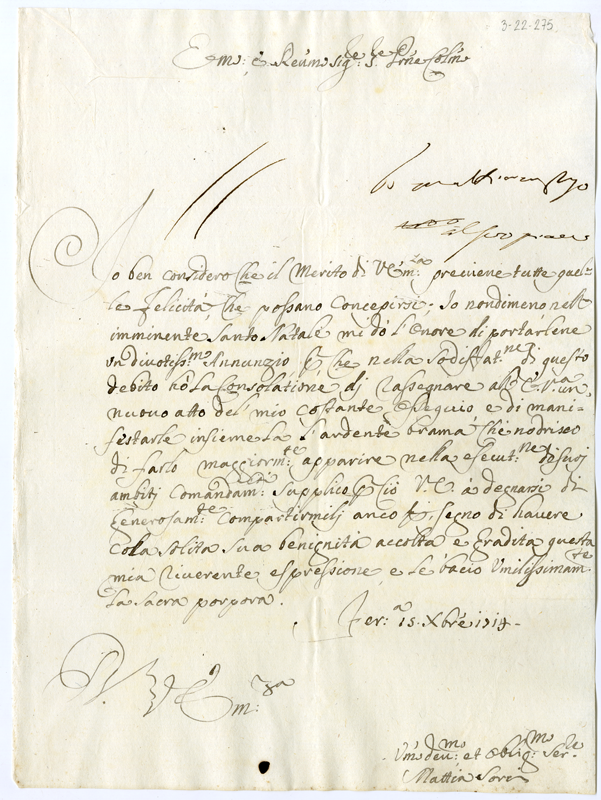 3-22-275
Emo: è Reumo sig:re S. Prne Colmo
Io ben considero che il Merito di V. Em:za previene tutte quel=
le felicità che possano Concepirsi; Io nondimeno nell
imminente Santo Natale mi dò l'onore di portarlene
un divotiss:mo Annunzio, che nella Sodisfat:ne di questo
debito hò la Consolatione di rassegnare all' E.V.a un
nuovo atto del mio Costante Ossequio e di mani=
festarle insieme la l'ardente brama che nodrisco
di farlo maggiorm:te apparire nella esecut:ne de suoi
ambiti Comandam:ti Supplico perciò V. E. à degnarsi di
generosam:te Compartirmili anco per segno di havere
Cola solita sua benignità accolta e gradita questa
mia riverente espressione, e le bacio Umilissimam:te
la Sacra porpora.
Fer:a 15. Xbre 1714
D. V. Em:za
Umo deu:mo et Oblig:mo Ser:re
Mattia